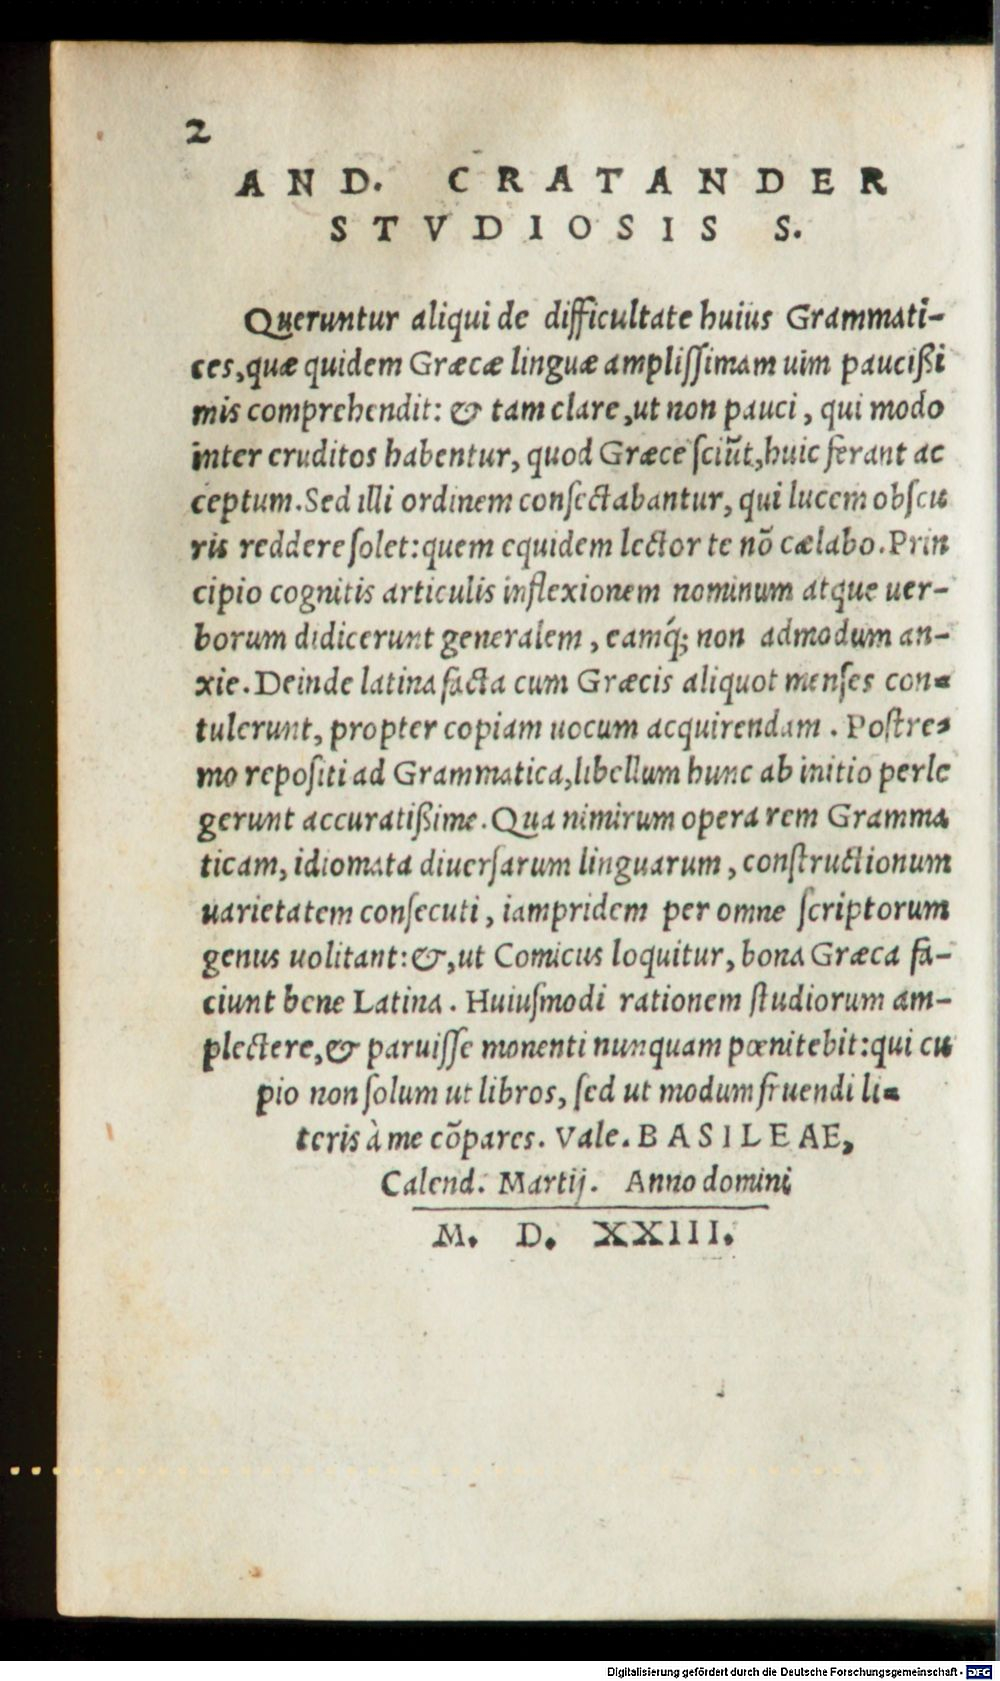 2
AND. CRATANDER
STVDIOSIS S.
Queruntur aliqui de difficultate huius Grammati-
ces, quæ quidem Græcæ linguæ amplissimam uim paucißi
mis comprehendit: & tam clare, ut non pauci, qui modo
inter eruditos habentur, quod Græce sciũt, huic ferant ac
ceptum. Sed illi ordinem consectabantur, qui lucem obscu
ris reddere solet: quem equidem lector te nõ cælabo. Prin
cipio cognitis articulis inflexionem nominum atque uer-
borum didicerunt generalem, eamq́; non admodum an-
xie. Deinde latina facta cum Græcis aliquot menses con-
tulerunt, propter copiam uocum acquirendam. Postre-
mo repositi ad Grammatica, libellum hunc ab initio perle
gerunt accuratißime. Qua nimirum opera rem Gramma
ticam, idiomata diuersarum linguarum, constructionum
uarietatem consecuti, iampridem per omne scriptorum
genus uolitant: &, ut Comicus loquitur, bona Græca fa-
ciunt bene Latina. Huiusmodi rationem studiorum am-
plectere, & paruisse monenti nunquam pœnitebit: qui cu
pio non solum ut libros, sed ut modum fruendi li-
teris à me cõpares. Vale. BASILEAE,
Calend. Martij. Anno domini
M. D. XXIII.
Digitalisierung gefördert durch die Deutsche Forschungsgemeinschaft - DFG